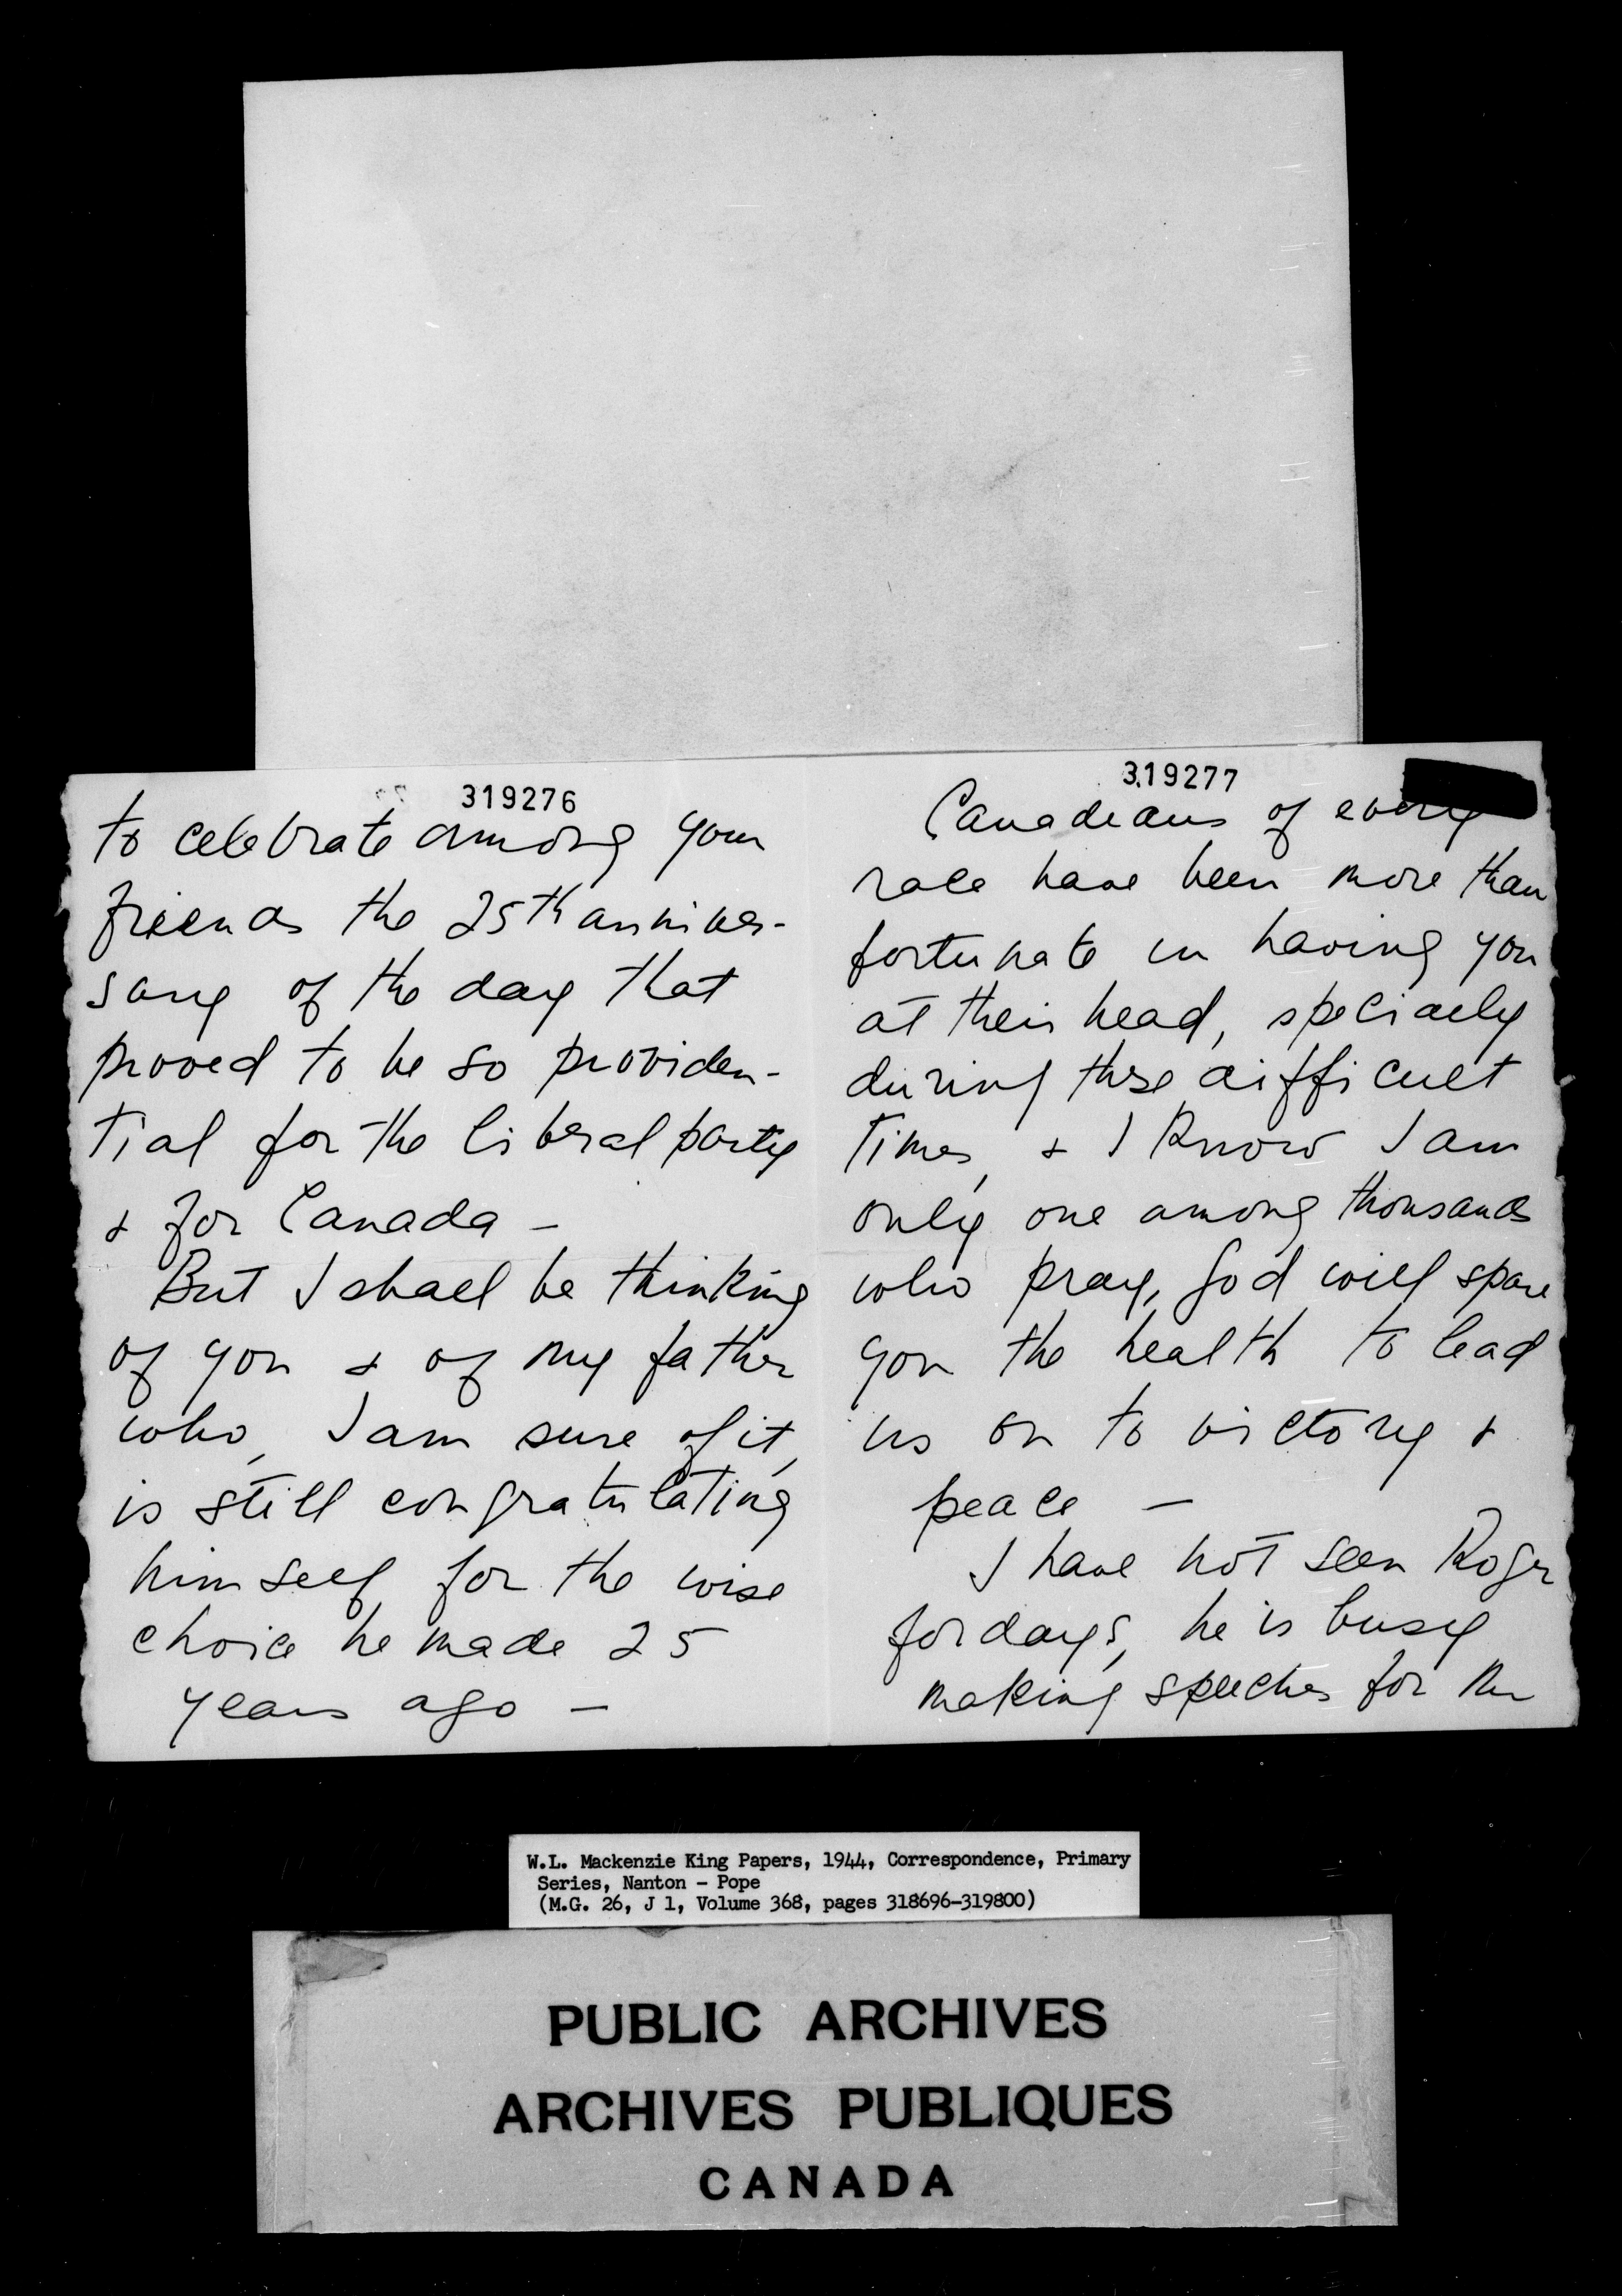 319276
to celebrate among your
friends the 25th anniver-
sary of the day that
proved to be so providen-
tial for the liberal party
& for Canada -
But I shall be thinking
of you & of my father
who, I am sure of it,
is still congratulating
himself for the wise
choice he made 25
years ago -
319277
Canadians of every
race have been more than
fortunate in having you
at their head, specially
during these difficult
times, & I know I am
only one among thousands
who pray, God will spare
you the health to lead
us on to victory &
peace -
I have not seen Roger
for days, he is busy
making speeches for
W.L. Mackenzie King Papers, 1944, Correspondence, Primary
Series, Nanton - Pope
(M.G. 26, J 1, Volume 368, pages 318696-319800)
PUBLIC ARCHIVES
ARCHIVES PUBLIQUES
CANADA